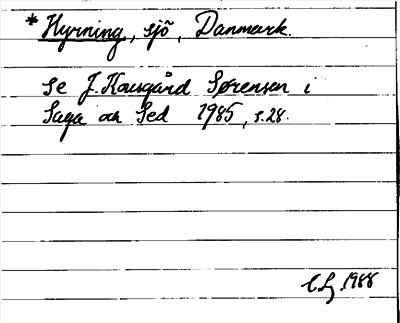 *Hyrning, sjö, Danmark.
Se J. Kousgård Sørensen i
Saga och Sed 1985, s. 28.
1988